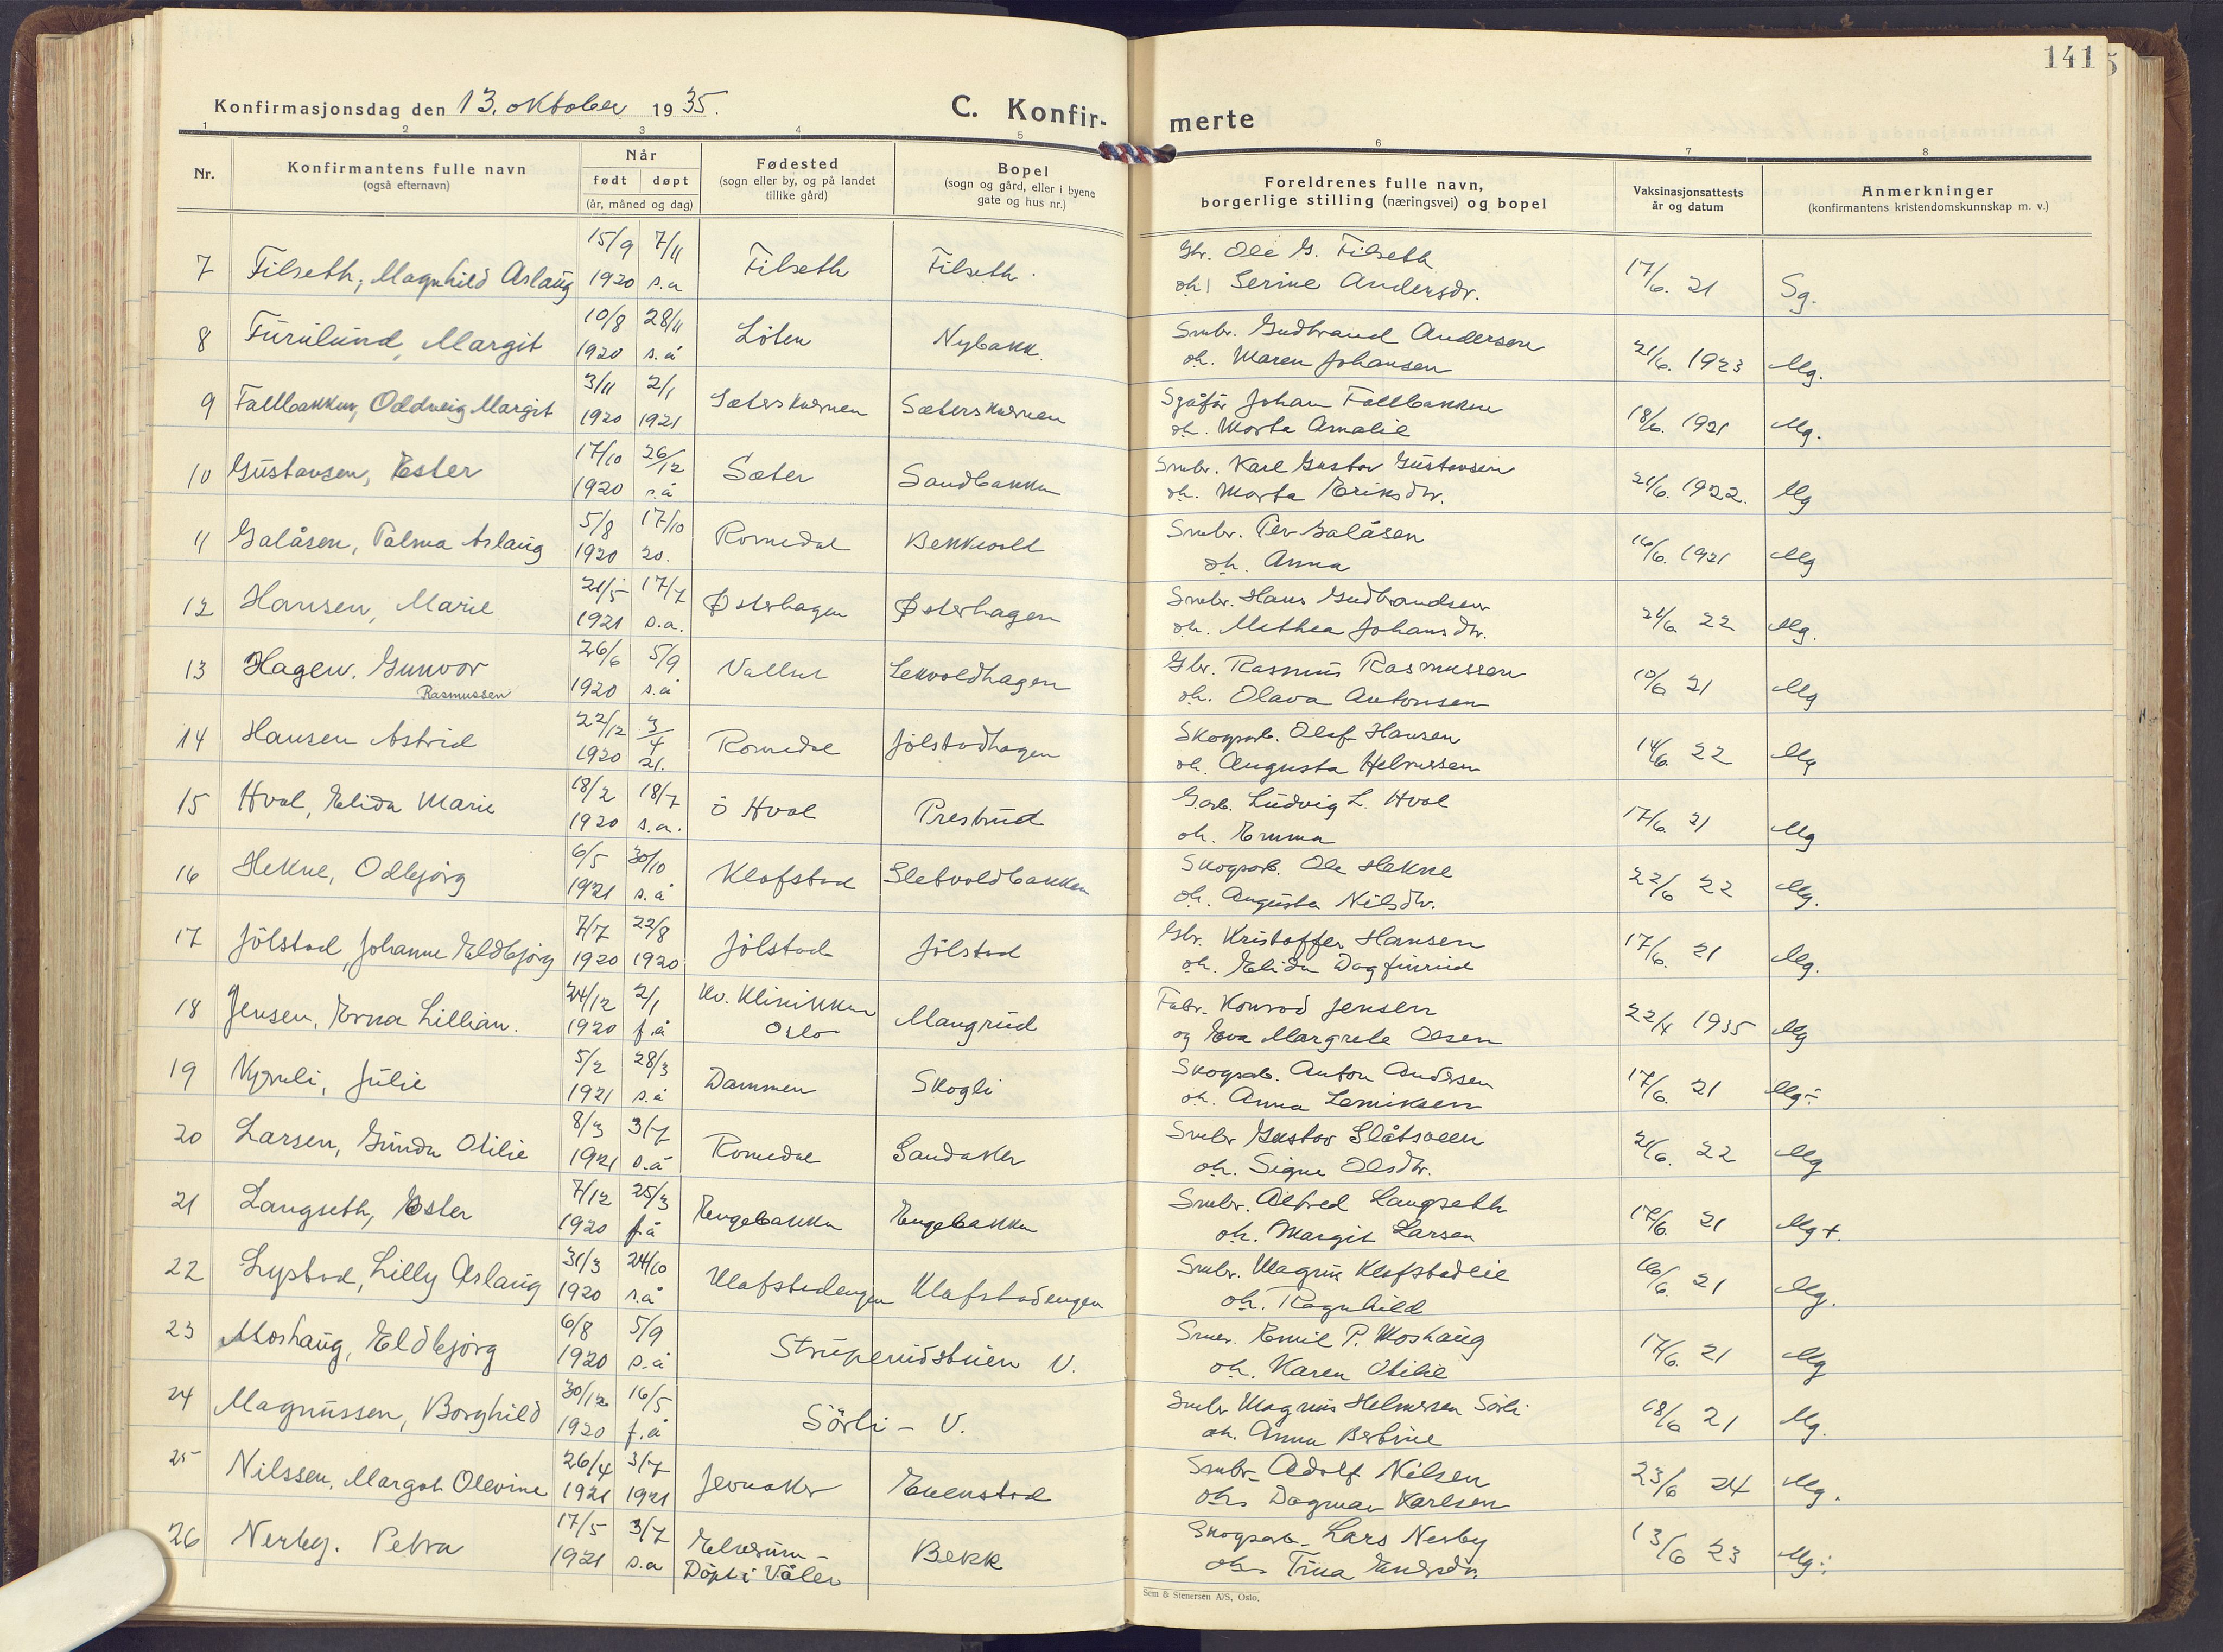 141
Konfirmasjonsdag den 13. oktober 1935.
C. Konfir-
merte
1 2 3 4 5 6 7 8
Nr.
Konfirmantens fulle navn
(også efternavn)
Når
født døpt
(år, måned og dag)
Fødested
(sogn eller by, og på landet
tillike gård)
Bopel
(sogn og gård, eller i byene
gate og hus nr.)
Foreldrenes fulle navn,
borgerlige stilling (næringsvei) og bopel
Vaksinasjonsattests
år og datum
Anmerkninger
(konfirmantens kristendomskunnskap m. v.)
15/9 7/11 Gbr. Ole G. Filseth
7 Filseth, Magnhild Aslaug 1920 s.a Filseth Filseth. oh. Serine Andersdr. 17/6. 21 Sg.
10/8 28/11 Smbr. Gudbrand Andersen
8 Furulund, Margit 1920 s.å Löten Nybakk. oh. Maren Johansen 21/6. 1923 Mg.
3/11 2/1 Johan Fallbakken
9 Fallbakken, Oddveig Margit 1920 1921 Sæterskvernen Sæterskvernen oh. Marta Amalie 18/6. 1921 Mg.
17/10 26/12 Smbr. Karl Gustav Gustavsen
10 Gustavsen, Ester 1920 s.å Sæter Sandbakken oh. Marta Eriksdtr. 21/6. 1922. Mg
5/8 17/10 Smbr. Per Galåsen
11 Galåsen, Palma Aslaug 1920 20. Romedal Bekkevold oh. Anna 16/6. 1921 Mg
21/5 17/7 Smbr. Hans Gudbrandsen
12 Hansen, Marie 1921 s.a. Østerhagen Østerhagen oh. Mathea Johansdtr. 24/6 22 Mg.
26/6 5/9 Gbr. Rasmus Rasmussen
13 Hagen, Gunvor 1920 s.å Vallset Lekvoldhagen oh. Olava Antonsen 10/6 21 Mg
Rasmussen
22/12 3/4 Skogsarb. Olaf Hansen
14 Hansen Astrid 1920 21. Romedal Jölstadhagen oh. Augusta Helmersen 14/6. 22 Mg
18/2 18/7 Garb. Ludvig L. Hval
15 Hval, Elida Marie 1920 s.a. ö Hval Prestrud oh. Emma 17/6. 21 Mg
6/5 30/10 Skogsarb. Ole Hekne
16 Hekne, Odbjörg 1921 s.å Klafstad Sletvoldbakken oh. Augusta Nilsdtr. 22/6 22 Mg.
7/7 22/8 Gbr. Kristoffer Hansen
17 Jölstad, Johanne Eldbjörg 1920 1920 Jölstad Jölstad oh. Elida Dagfinrud 17/6. 21 Mg.
24/12 2/1 Kv. Klinikken Fabr. Konrad Jensen
18 Jensen, Erna Lillian. 1920 f.å Oslo Mangrud og Eva Margrete Olsen 22/4 1935 Mg
5/2 28/3 Skogsarb. Anton Andersen
19 Julie 1921 s.å Dammen Skogli oh. Anna 17/6. 21 Mg÷
8/3 3/7 Smbr Gustav Slåtsveen
20 Larsen, Gunda Otilie 1921 s.å Romedal Sandaker oh. Signe Olsdtr. 21/6. 22 Mg
7/12 25/3 Smbr. Alfred Langseth
21 Langseth, Ester 1920 f.å Engebakken Engebakken oh. Margit Larsen 17/6. 21 Mg+.
31/3 24/10 Smbr. Magnus Klafstadlie
22 Lystad, Lilly Aslaug 1920 s.å Klafstadengen Klafstadengen oh. Ragnhild 16/6. 21 Mg.
6/8 5/9 Emil P. Moshaug
23 Moshaug, Eldbjörg 1920 s.å Struperudstuen V. oh. Karen Otilie 17/6. 21 Mg
30/12 16/5 Smbr Magnus Helmersen Sörli
24 Magnussen, Borghild 1920 f.å Sörli - V. oh. Anna Bertine 18/6 21 Mg.
26/4 3/7 Smbr. Adolf Nilsen
25 Nilssen, Margot Olevine 1921 1921 Jevnaker Evenstad oh. Dagmar Karlsen 23/6 24 Mg.
17/5 3/7 Elverum - Skogsarb. Lars Nerby
26 Nerby. Petra 1921 s.a Döpt i Våler Bekk oh. Tina 13/6 23 Mg÷
Sem & Stenersen A/S, Oslo.